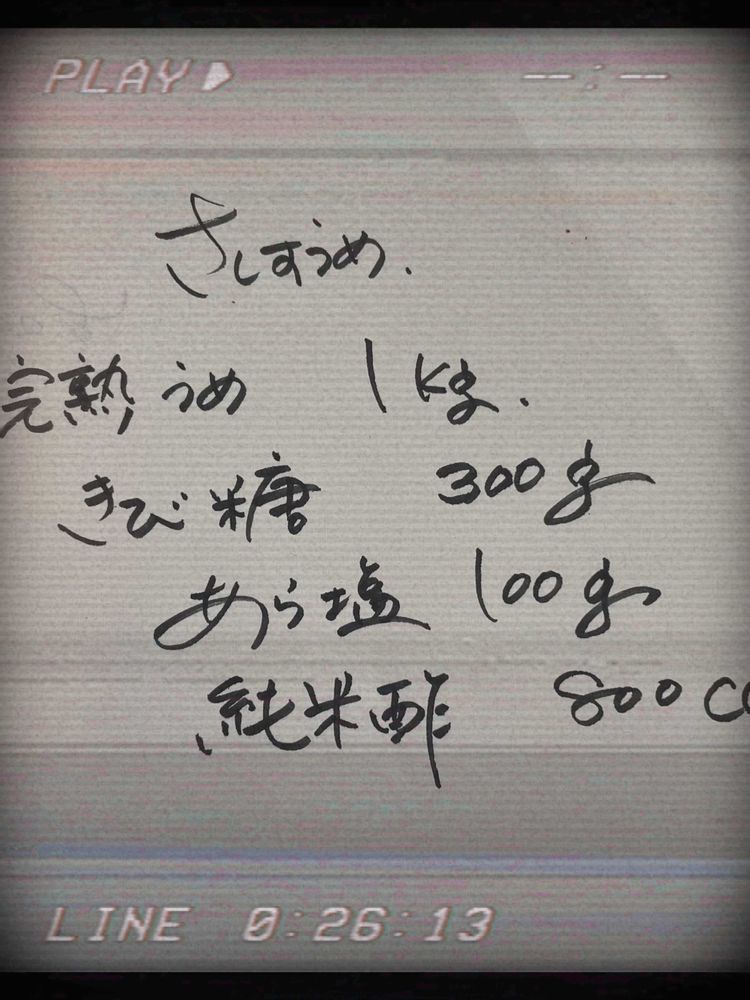 PLAY --:--
さしすうめ.
完熟うめ 1kg.
きび糖 300g
あら塩 100g
純米酢 800cc
LINE 0:26:13